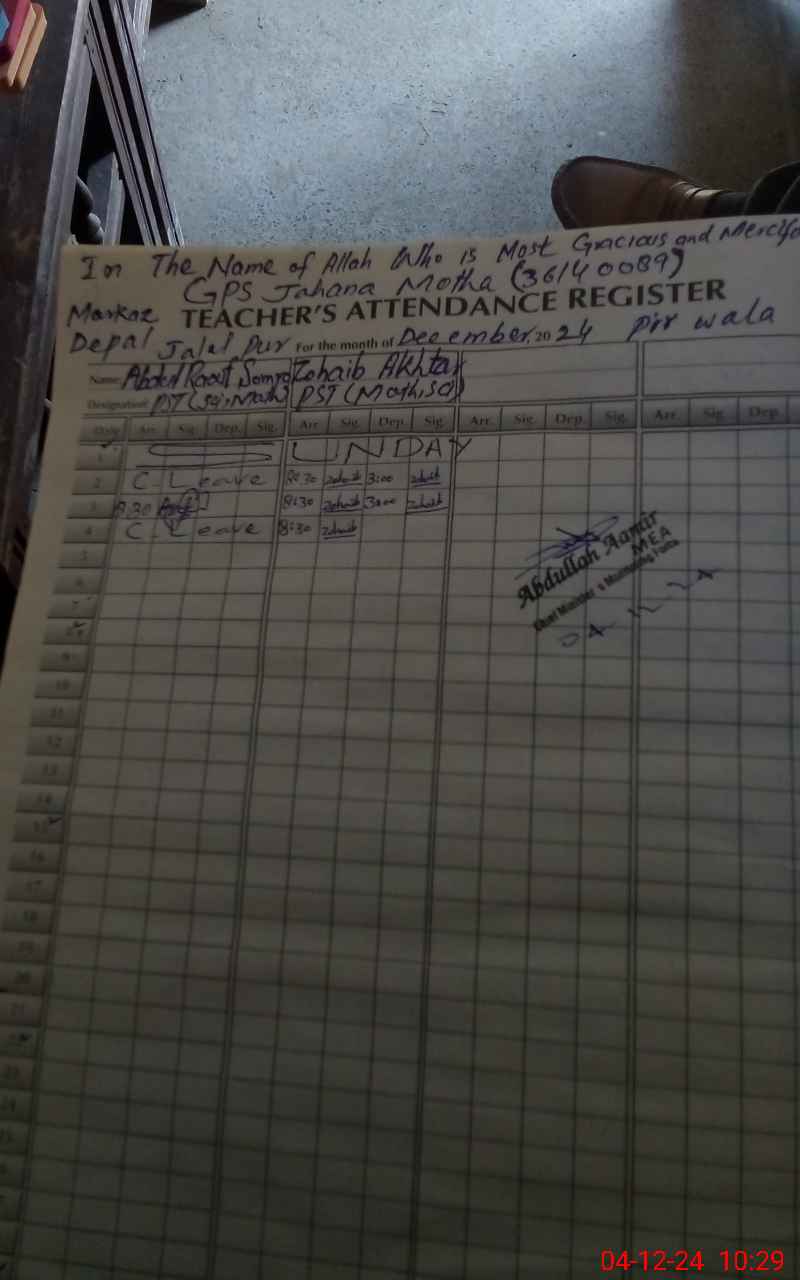 In The Name of Allah Who is Most Gracious and Mercifu
GPS Jahana Motha (36140089)
Markaz TEACHER'S ATTENDANCE REGISTER
Depal Jalal Pur For the month of December 2024 Pir wala
Name Abdul Raouf Somro Zohaib Akhtar
Designation PST (Sci-Math) PST (Math,sci)
Date Arr. Sig. Dep. Sig. Arr. Sig. Dep. Sig. Arr. Sig. Dep. Sig. Arr. Sig. Dep.
1 S UNDAY
2 C. Leave 8:30 Zohaib 3:00 Zohaib
3 8:30 8:30 Zohaib 3:00 Zohaib
4 C. Leave 8:30 Zohaib
5
6
7
8
9
10
11
12
13
14
15
16
17
18
19
20
21
22
23
24
25
Abdullah Aamir
MEA
Chief Minister's Monitoring Force
04-12-24 10:29